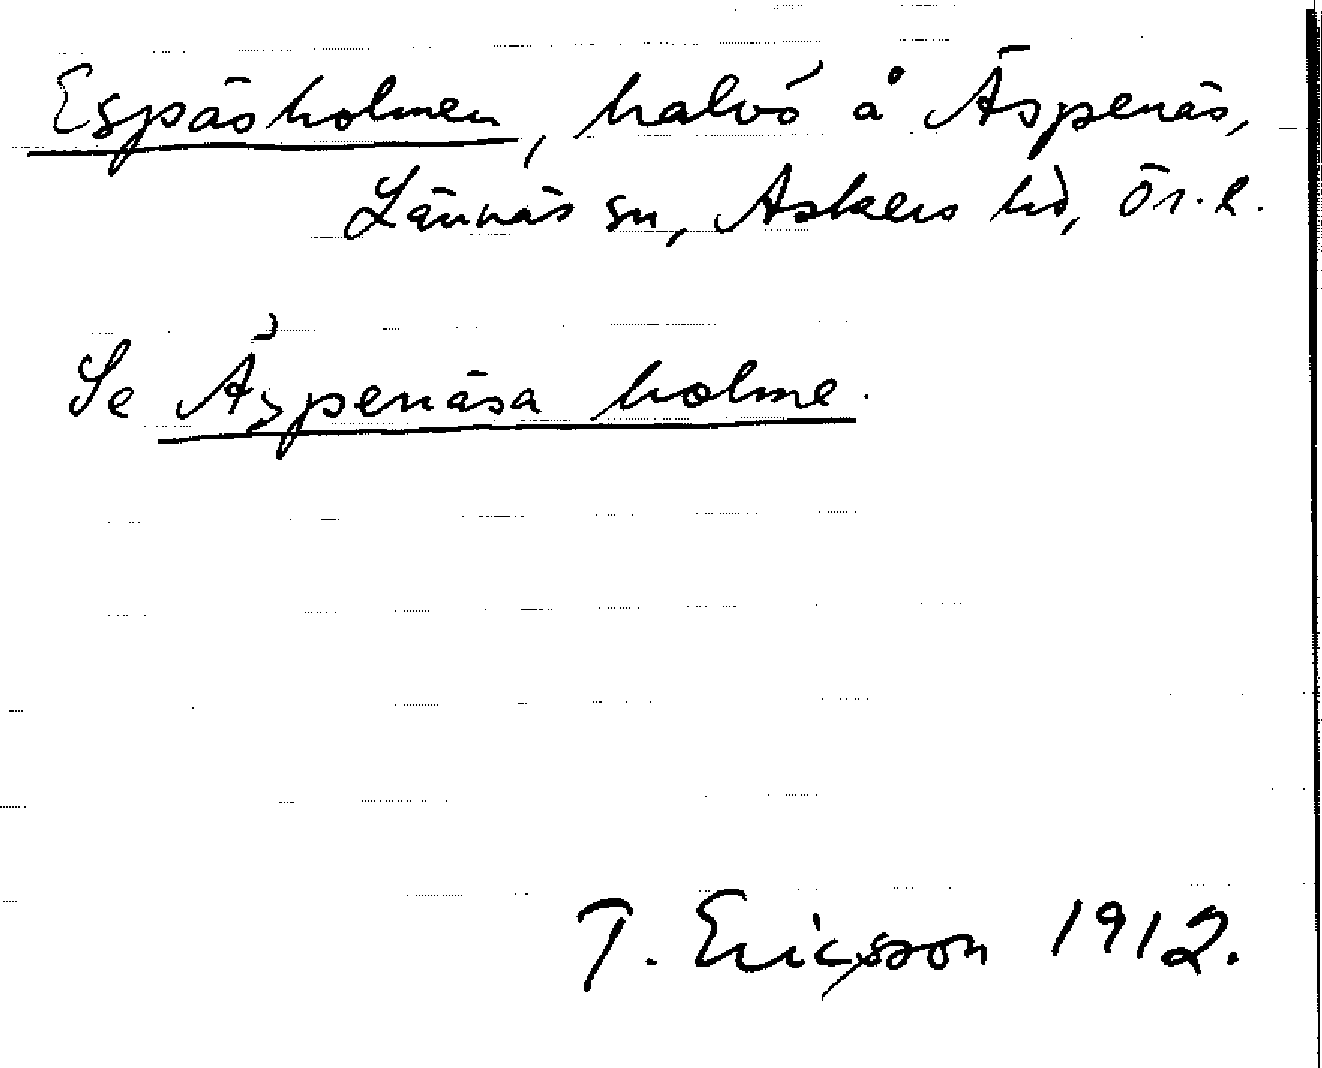 Espäsholmen, halvö å Äspenäs,
Lännäs sn, Askers hd, Ör. l.
Se Äspenäsa holme.
T. Ericsson 1912.